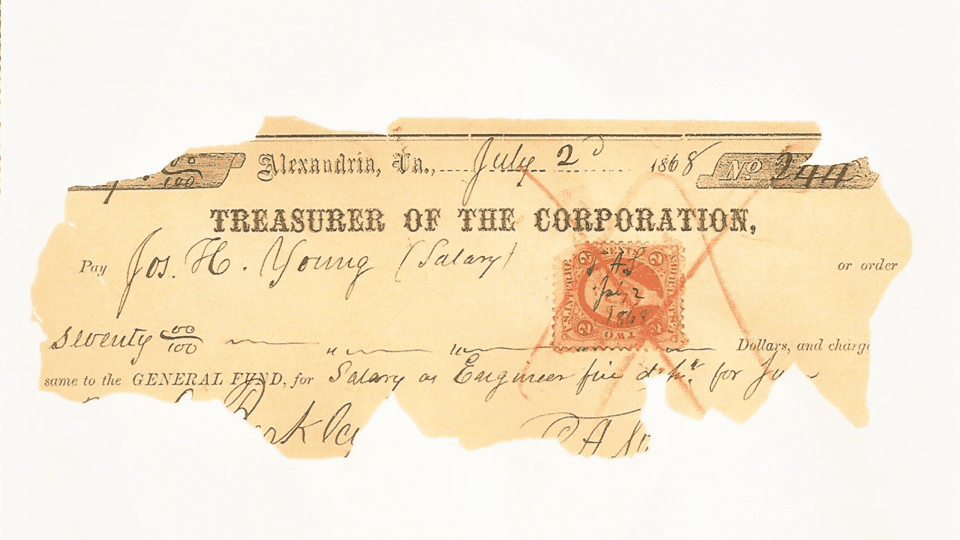 00/100 Alexandria, Va., July 2d 1868 No 244
TREASURER OF THE CORPORATION,
Pay Jos. H. Young (Salary) or order
seventy 00/100 Dollars, and charge
same to the GENERAL FUND, for Salary as Engineer fire for
2 CENTS 2
U.S. INTER REV
July 2
1868
2 TWO 2